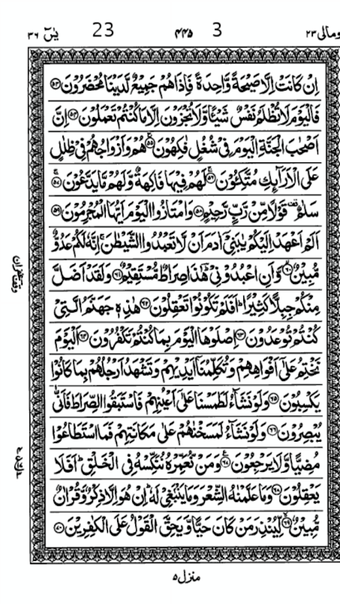 ومالی ۲۳ 3 ۴۴۵ 23 یٰسٓ ۳۶
اِنْ كَانَتْ اِلَّا صَيْحَةً وَّاحِدَةً فَاِذَا هُمْ جَمِيْعٌ لَّدَيْنَا مُحْضَرُوْنَ ۝۵۳
فَالْيَوْمَ لَا تُظْلَمُ نَفْسٌ شَيْـًٔا وَّلَا تُجْزَوْنَ اِلَّا مَا كُنْتُمْ تَعْمَلُوْنَ ۝۵۴ اِنَّ
اَصْحٰبَ الْجَنَّةِ الْيَوْمَ فِىْ شُغُلٍ فٰكِهُوْنَ ۝۵۵ هُمْ وَاَزْوَاجُهُمْ فِىْ ظِلٰلٍ
عَلَى الْاَرَآئِكِ مُتَّكِـُٔوْنَ ۝۵۶ لَهُمْ فِيْهَا فَاكِهَةٌ وَّلَهُمْ مَّا يَدَّعُوْنَ ۝۵۷
سَلٰمٌ قَوْلًا مِّنْ رَّبٍّ رَّحِيْمٍ ۝۵۸ وَامْتَازُوا الْيَوْمَ اَيُّهَا الْمُجْرِمُوْنَ ۝۵۹
اَلَمْ اَعْهَدْ اِلَيْكُمْ يٰبَنِىْٓ اٰدَمَ اَنْ لَّا تَعْبُدُوا الشَّيْطٰنَ اِنَّهٗ لَكُمْ عَدُوٌّ
مُّبِيْنٌ ۝۶۰ وَّاَنِ اعْبُدُوْنِىْ هٰذَا صِرَاطٌ مُّسْتَقِيْمٌ ۝۶۱ وَلَقَدْ اَضَلَّ
مِنْكُمْ جِبِلًّا كَثِيْرًا اَفَلَمْ تَكُوْنُوْا تَعْقِلُوْنَ ۝۶۲ هٰذِهٖ جَهَنَّمُ الَّتِىْ
كُنْتُمْ تُوْعَدُوْنَ ۝۶۳ اِصْلَوْهَا الْيَوْمَ بِمَا كُنْتُمْ تَكْفُرُوْنَ ۝۶۴ اَلْيَوْمَ
نَخْتِمُ عَلٰٓى اَفْوَاهِهِمْ وَتُكَلِّمُنَآ اَيْدِيْهِمْ وَتَشْهَدُ اَرْجُلُهُمْ بِمَا كَانُوْا
يَكْسِبُوْنَ ۝۶۵ وَلَوْ نَشَآءُ لَطَمَسْنَا عَلٰٓى اَعْيُنِهِمْ فَاسْتَبَقُوا الصِّرَاطَ فَاَنّٰى
يُبْصِرُوْنَ ۝۶۶ وَلَوْ نَشَآءُ لَمَسَخْنٰهُمْ عَلٰى مَكَانَتِهِمْ فَمَا اسْتَطَاعُوْا
مُضِيًّا وَّلَا يَرْجِعُوْنَ ۝۶۷ وَمَنْ نُّعَمِّرْهُ نُنَكِّسْهُ فِى الْخَلْقِ اَفَلَا
يَعْقِلُوْنَ ۝۶۸ وَمَا عَلَّمْنٰهُ الشِّعْرَ وَمَا يَنْۢبَغِىْ لَهٗ اِنْ هُوَ اِلَّا ذِكْرٌ وَّقُرْاٰنٌ
مُّبِيْنٌ ۝۶۹ لِّيُنْذِرَ مَنْ كَانَ حَيًّا وَّيَحِقَّ الْقَوْلُ عَلَى الْكٰفِرِيْنَ ۝۷۰
منزل ۵